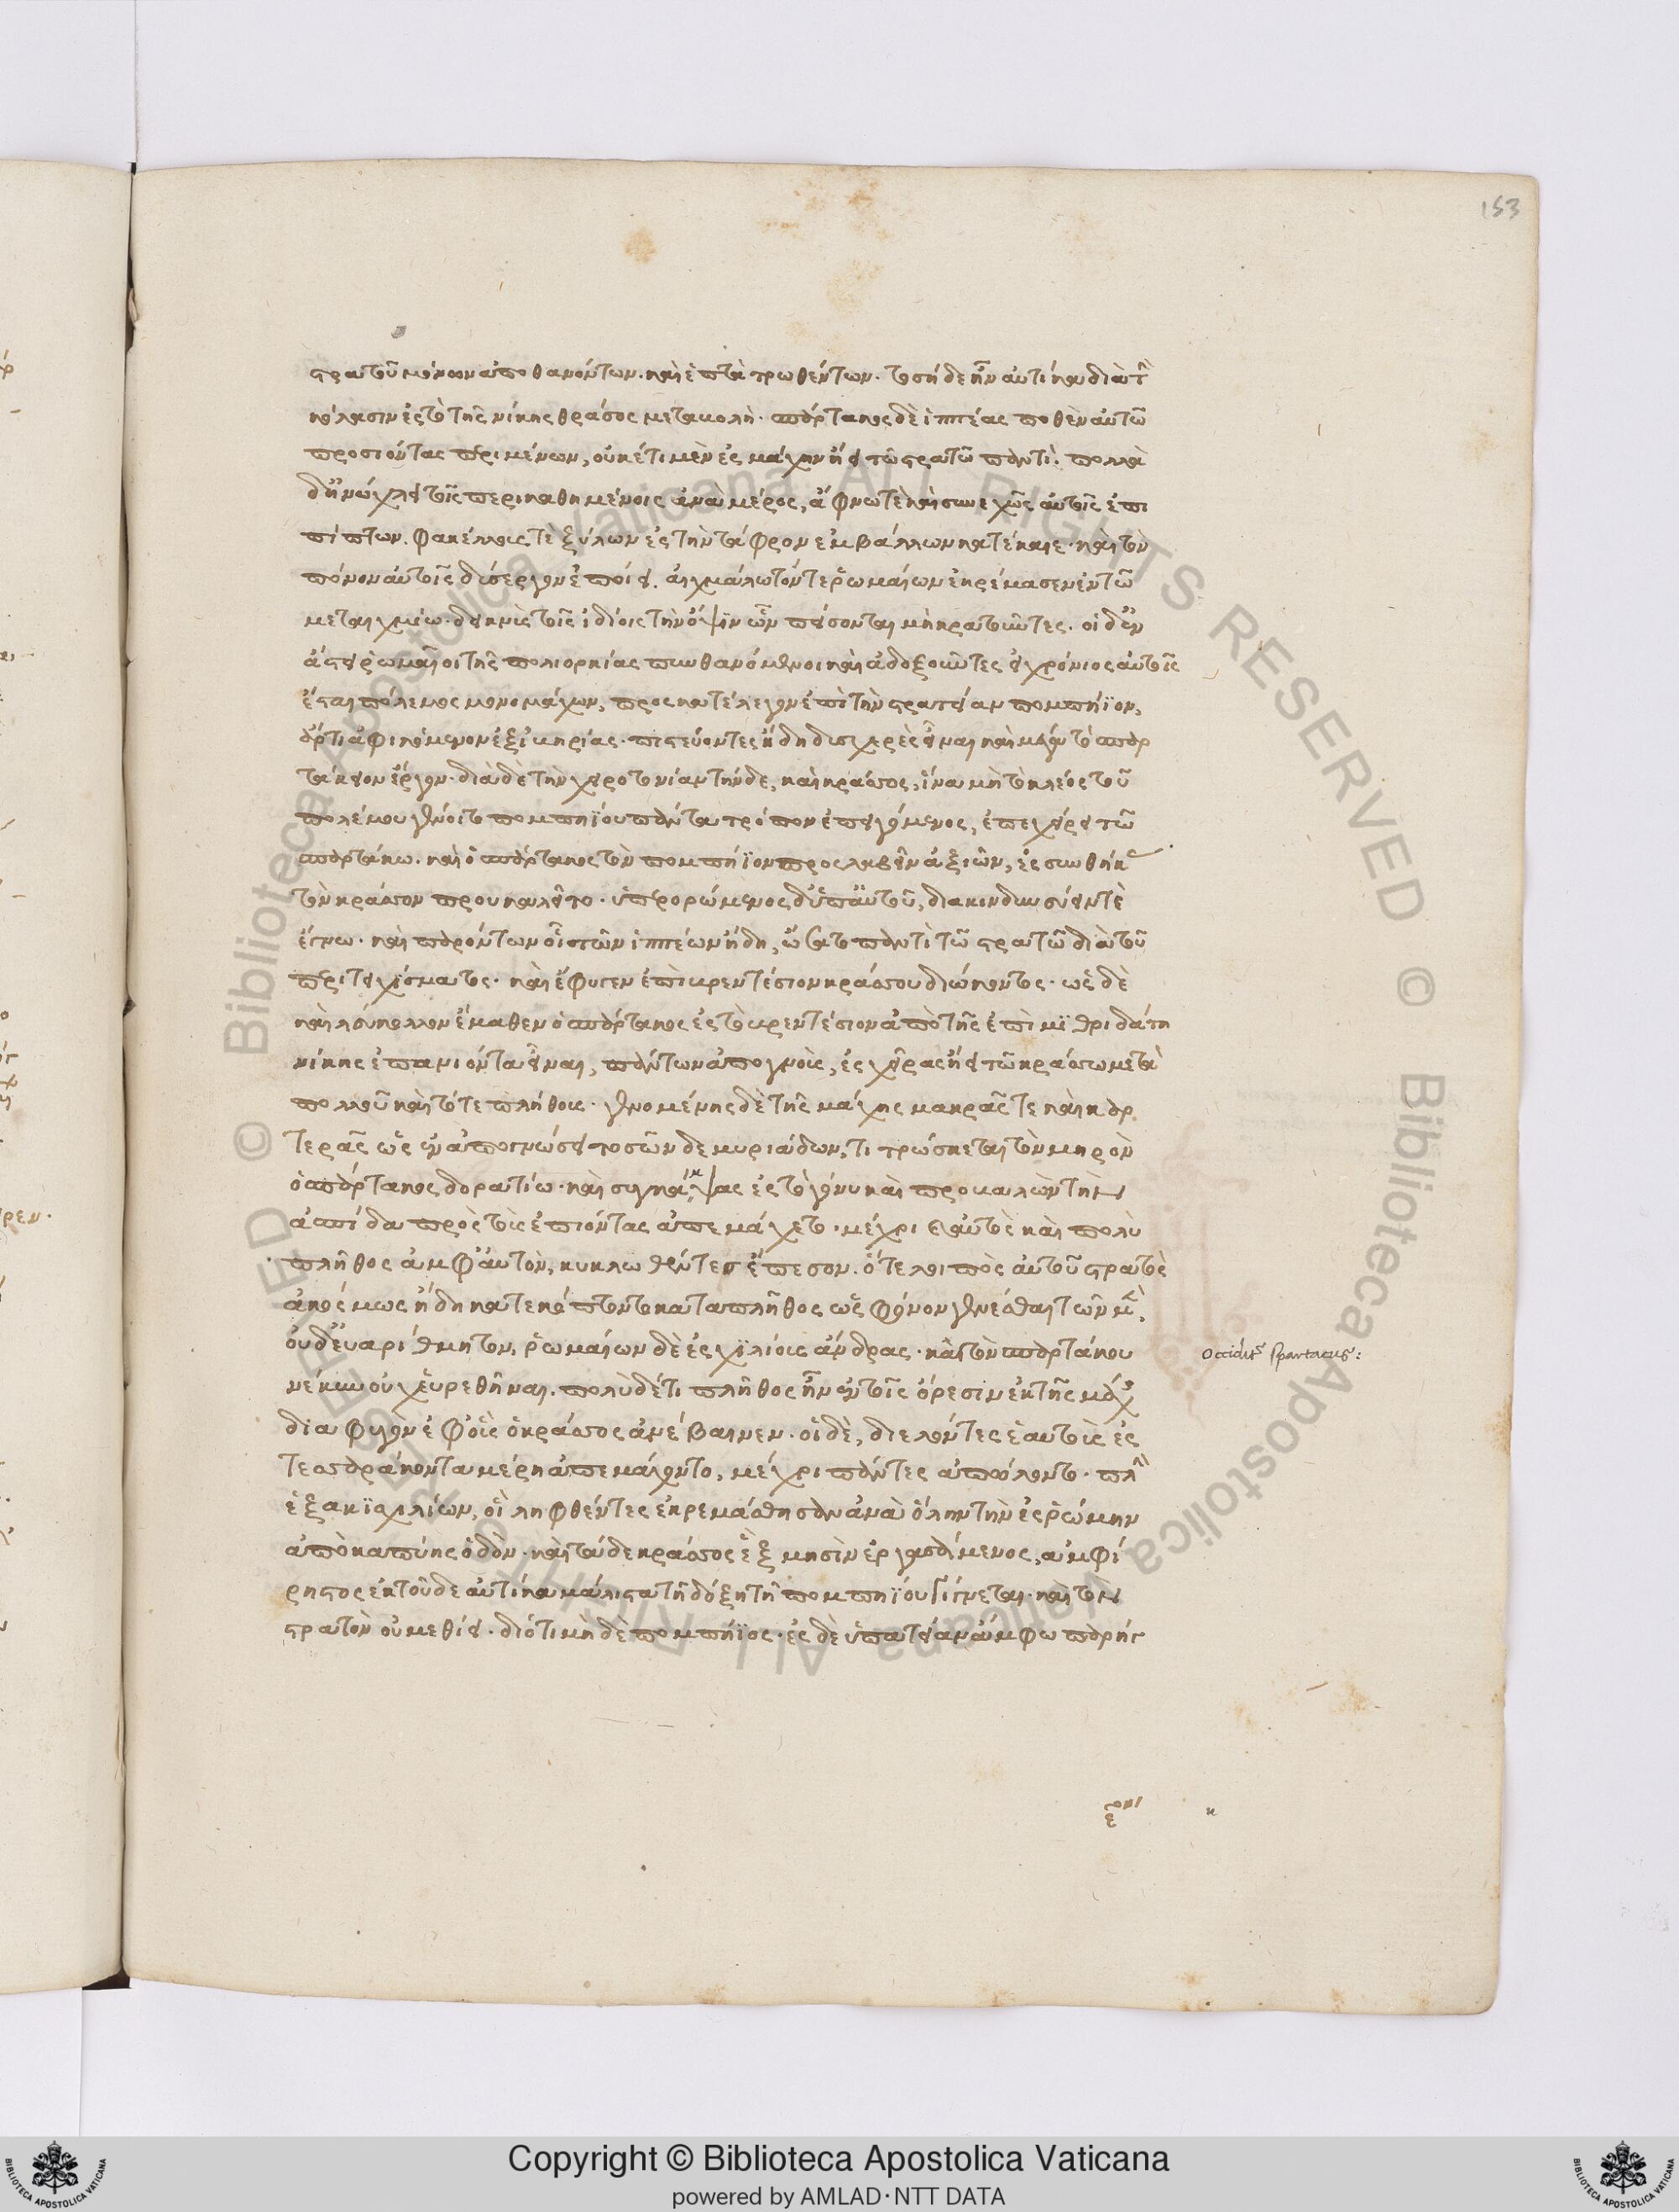 153
στρατοῦ μόνων ἀποθανόντων. καὶ ἑπτὰ τρωθέντων. τοσήδε ἦν αὐτίκα διὰ τὴν
κόλασιν ἐς τὸ τῆς νίκης θράσος μεταβολή. σπάρτακος δὲ ἱππέας ποθὲν αὐτῶ
προσιόντας περιμένων, οὐκέτι μὲν ἐς μάχην ἤει τῶ στρατῶ παντί. πολλὰ
δ' ἠνώχλει τοῖς περικαθημένοις ἀνὰ μέρος, ἄφνω τὲ καὶ συνεχῶς αὐτοῖς ἐπι
πίπτων. φακέλλους τὲ ξύλων ἐς τὴν τάφρον ἐμβάλλων κατέκαιε. καὶ τὸν
πόνον αὐτοῖς δύσεργον ἐποίει. αἰχμάλωτόν τε ῥωμαίων ἐκρέμασεν ἐν τῶ
μεταιχμίω. δεικνὺς τοῖς ἰδίοις τὴν ὄψιν ὧν πείσονται μὴ κρατοῦντες. οἱ δ' ἐν
ἄστει ῥωμαῖοι τῆς πολιορκίας πυνθανόμενοι καὶ ἀδοξοῦντες εἰ χρόνιος αὐτοῖς
ἔσται πόλεμος μονομάχων, προσκατέλεγον ἐπὶ τὴν στρατείαν πομπήϊον,
ἄρτι ἀφικόμενον ἐξ ἰβηρίας. πιστεύοντες ἤδη δυσχερὲς εἶναι καὶ μέγα τὸ σπαρ
τάκειον ἔργον. διὰ δὲ τὴν χειροτονίαν τήνδε, καὶ κράσσος, ἵνα μὴ τὸ κλέος τοῦ
πολέμου γένοιτο πομπηΐου πάντα τρόπον ἐπειγόμενος, ἐπεχείρει τῶ
σπαρτάκω. καὶ ὁ σπάρτακος τὸν πομπήϊον προσλαβεῖν ἀξιῶν, ἐς συνθήκας
τὸν κράσσον προυκαλεῖτο. ὑπερορώμενος δ' ὑπ' αὐτοῦ, διακινδυνεύειν τὲ
ἔγνω. καὶ παρόντων οἱ τῶν ἱππέων ἤδη, ὤσατο παντὶ τῶ στρατῶ διὰ τοῦ
περιτειχίσματος. καὶ ἔφυγεν ἐπὶ βρεντέσιον κράσσου διώκοντος. ὡς δὲ
καὶ λεύκολλον ἔμαθεν ὁ σπάρτακος ἐς τὸ βρεντέσιον ἀπὸ τῆς ἐπὶ μιθριδάτη
νίκης ἐπανιόντα εἶναι, πάντων ἀπογνοὺς, ἐς χεῖρας ἤει τῶ κράσσω μετὰ
πολλοῦ καὶ τότε πλήθους. γενομένης δὲ τῆς μάχης μακρᾶς τε καὶ καρ
τερᾶς ὡς ἐν ἀπογνώσει τοσῶνδε μυριάδων, τιτρώσκεται τὸν μηρὸν
ὁ σπάρτακος δορατίω. καὶ συγκάμψας ἐς τὸ γόνυ καὶ προβαλὼν τὴν
ἀσπίδα πρὸς τοὺς ἐπιόντας ἀπεμάχετο. μέχρι καὶ αὐτὸς καὶ πολὺ
πλῆθος ἀμφ' αὐτὸν, κυκλωθέντες ἔπεσον. ὅ τε λοιπὸς αὐτοῦ στρατὸς
ἀκόσμως ἤδη κατεκόπτοντο κατὰ πλῆθος ὡς φόνον γενέσθαι τῶν μὲν,
οὐδ' εὐαρίθμητον, ῥωμαίων δὲ ἐς χιλίους ἄνδρας. καὶ τὸν σπαρτάκου
νέκυν οὐχ εὑρεθῆναι. πολὺ δ' ἔτι πλῆθος ἦν ἐν τοῖς ὄρεσιν ἐκ τῆς μάχης
διαφυγὸν ἐφ' οἷς ὁ κράσσος ἀνέβαινεν. οἱ δὲ, διελόντες ἑαυτοὺς ἐς
τεσσαράκοντα μέρη ἀπεμάχοντο, μέχρι πάντες ἀπώλοντο. πλὴν
ἑξακισχιλίων, οἳ ληφθέντες ἐκρεμάσθησαν ἀνὰ ὅλην τὴν ἐς ῥώμην
ἀπὸ καπύης ὁδόν. καὶ τάδε κράσσος ἓξ μησὶν ἐργασάμενος, ἀμφή
ριστος ἐκ τοῦδε αὐτίκα μάλιστα τῆ δόξη τῆ πομπηΐου γίγνεται. καὶ τὸν
στρατὸν οὐ μεθίει. διότι μὴ δὲ πομπήϊος. ἐς δὲ ὑπατείαν ἄμφω παρήγ
Occiditur Spartacus: